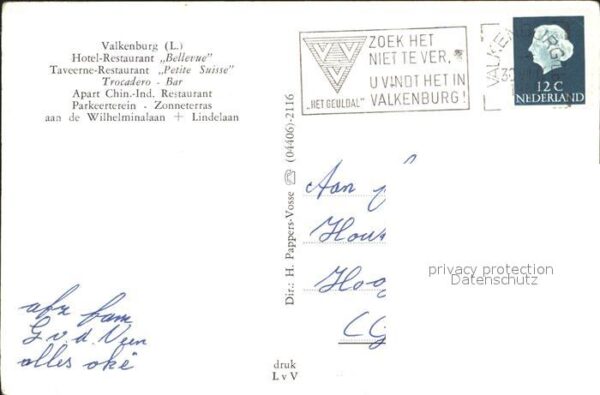 Valkenburg (L.)
Hotel-Restaurant „Bellevue"
Taveerne-Restaurant „Petite Suisse"
Trocadero - Bar
Apart Chin.-Ind. Restaurant
Parkeerterein - Zonneterras
aan de Wilhelminalaan + Lindelaan
ZOEK HET
NIET TE VER,
U VINDT HET IN
VALKENBURG!
„HET GEULDAL"
VALKENBURG
12 C
NEDERLAND
Dir.: H. Pappers-Vosse ☏ (04406)-2116
Aan
Hoog
privacy protection
Datenschutz
afz fam
G v. d. Veen
alles oké
druk
L v V